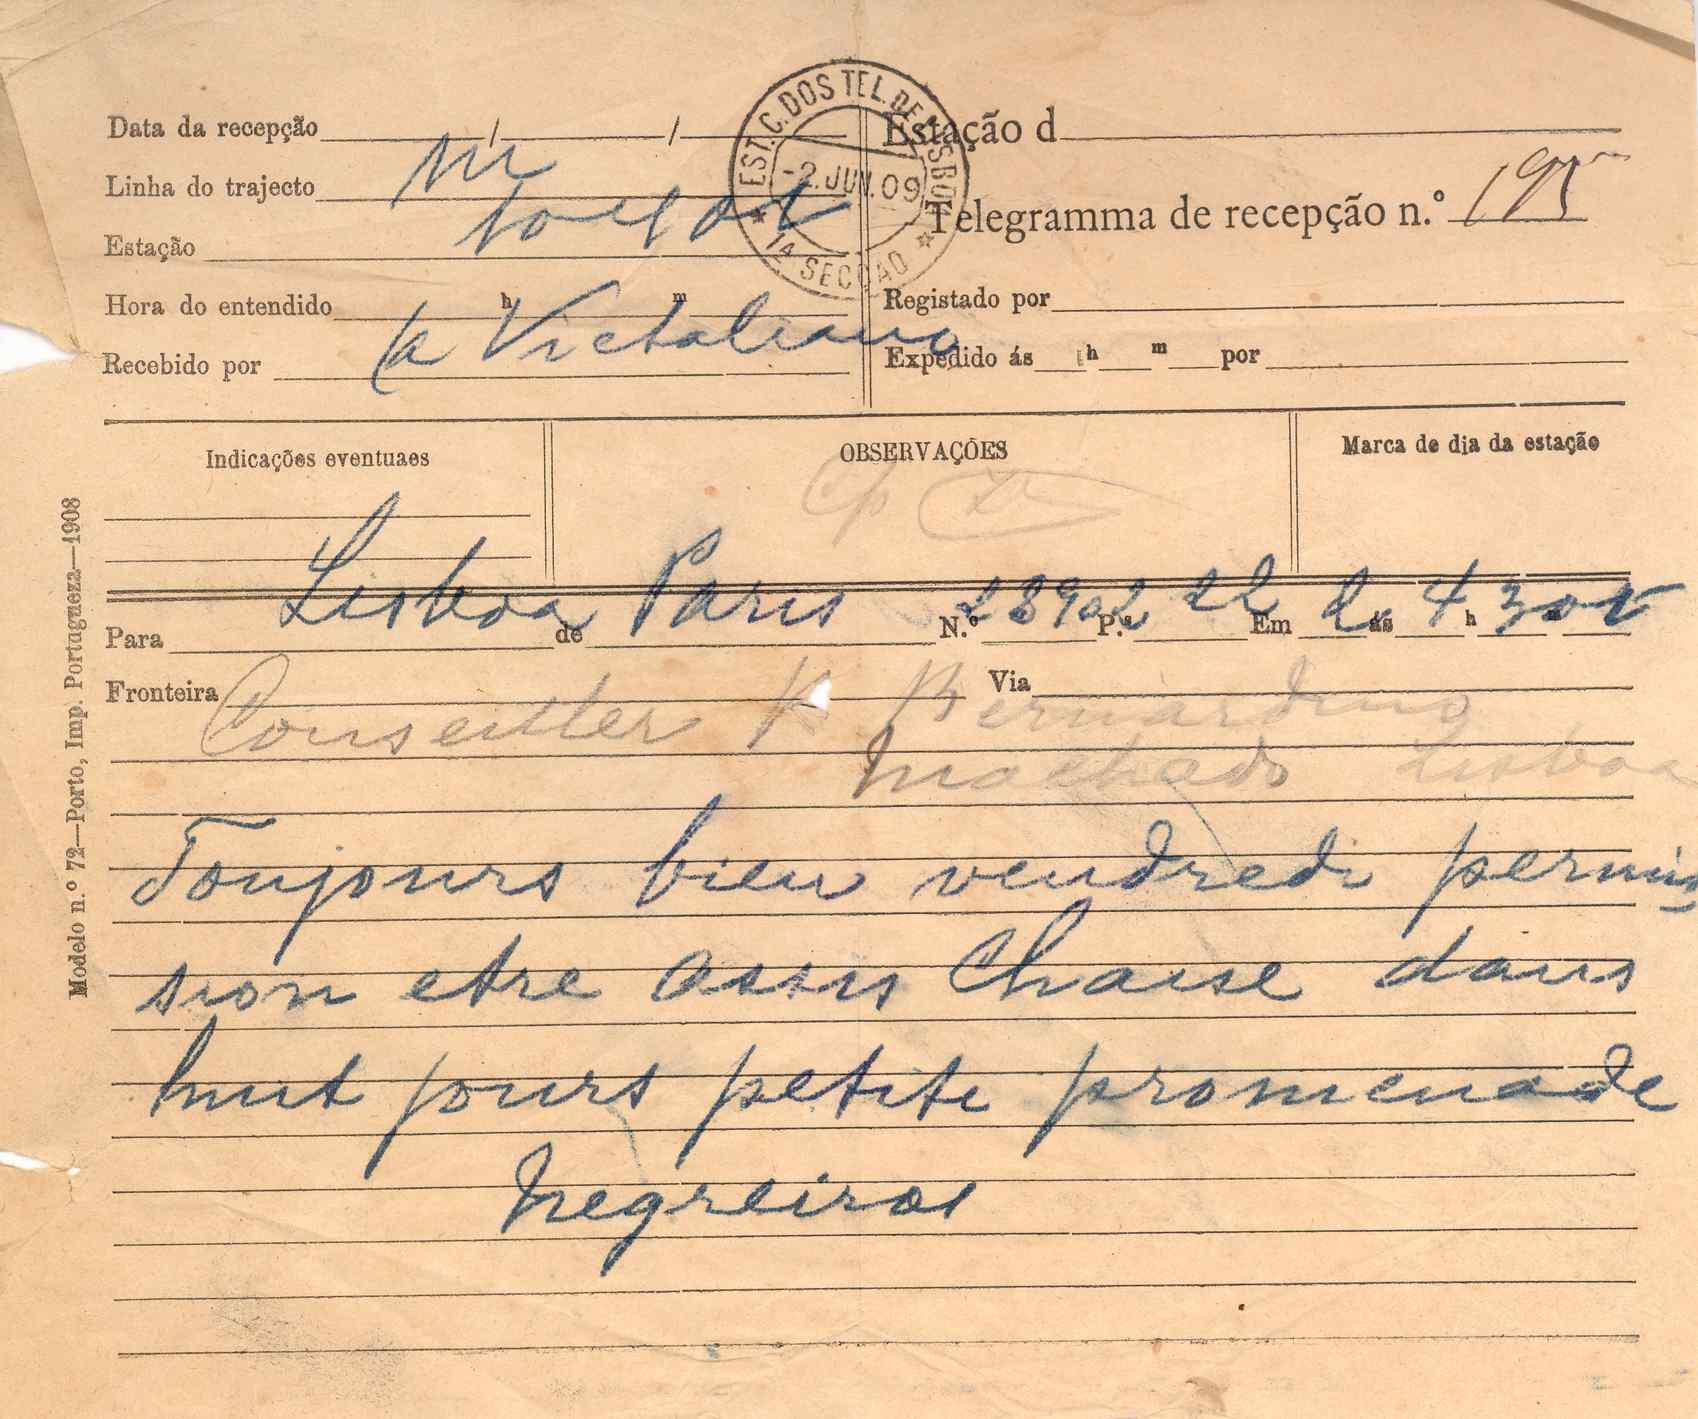 EST. C. DOS TEL. DE LISBOA
-2. JUN. 09
1ª SECÇÃO
Data da recepção / /
Linha do trajecto
Estação
Hora do entendido h m
Recebido por
Estação d
Telegramma de recepção n.º 195
Registado por
Expedido ás h m por
Indicações eventuaes
OBSERVAÇÕES
Marca de dia da estação
Para Lisboa de Paris N.º P.as 22 Em 2 ás 4 h 30
Fronteira Via
Conseiller Bernardino
Machado Lisboa
Toujours bien vendredi permis
sion etre assis Chaise dans
huit jours petite promenade
Negreiros
Modelo n.º 72—Porto, Imp. Portugueza—1908